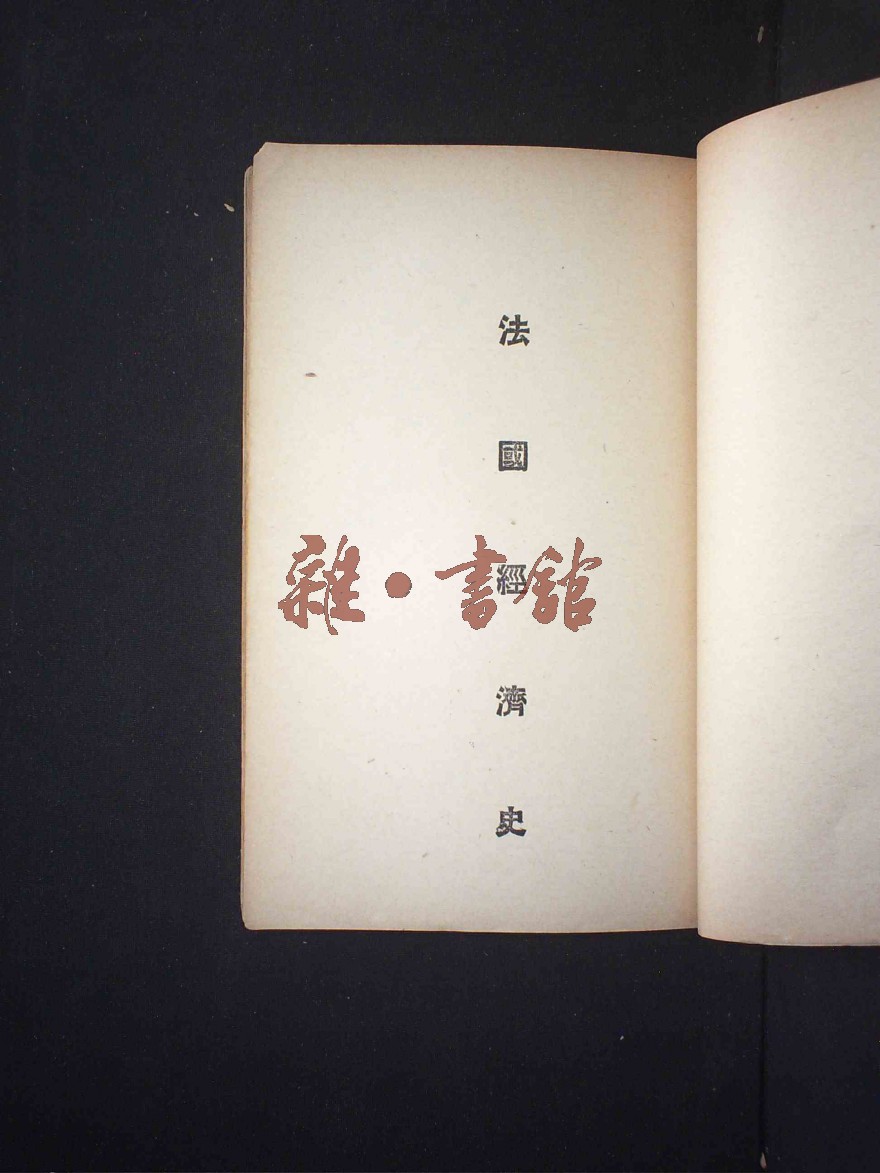 法國經濟史
雜·書館